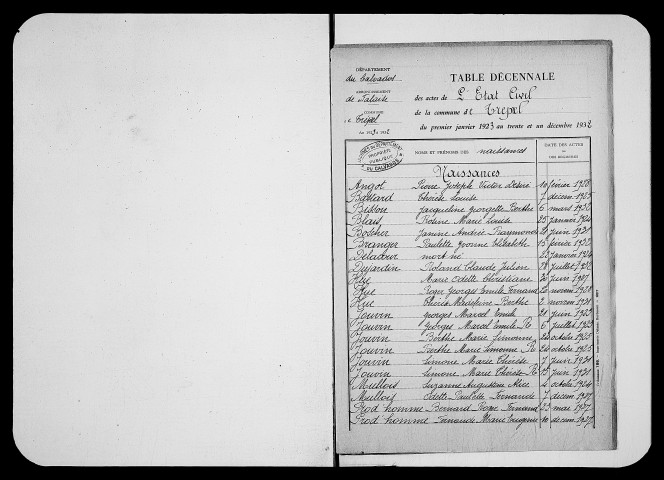 DÉPARTEMENT
du Calvados
ARRONDISSEMENT
de Falaise
COMMUNE
de Tréprel
TABLE DÉCENNALE
des actes de L'Etat Civil
de la commune de Tréprel
du premier janvier 1923 au trente et un décembre 1932
NOMS ET PRÉNOMS DES naissances
DATE DES ACTES
Naissances
Angot Pierre Joseph Victor Désiré 10 février 1928
Bastard Thérèse Louise 7 décem 1925
Bisson Jacqueline Georgette Berthe 6 mars 1932
Blais Rosine Marie Louise 25 janvier 1924
Boscher Janine Andrée Raymonde 20 juin 1931
Branger Paulette Yvonne Elisabeth 15 février 1932
Deladour mort né 22 janvier 1924
Dujardin Roland Claude Julien 28 juillet 1932
Hue Marie Odette Christiane 30 juin 1927
Hue Roger Georges Emile Fernand 20 novem 1928
Hue Thérèse Madeleine Berthe 2 novem 1931
Jouvin Georges Marcel Emile 21 juin 1923
Jouvin Georges Marcel Emile Re 6 juillet 1923
Jouvin Berthe Marie Simonne 20 octobre 1925
Jouvin Berthe Marie Simonne R 24 octobre 1925
Jouvin Simone Marie Thérèse 7 juin 1931
Jouvin Simone Marie Thérèse R 13 juin 1931
Mullois Suzanne Augustine Alice 4 octobre 1924
Mullois Odette Paulette Fernande 7 décem 1927
Prod'homme Bernard Roger Fernand 23 mai 1932
Prod'homme Fernande Marie Eugénie 10 décem 1927